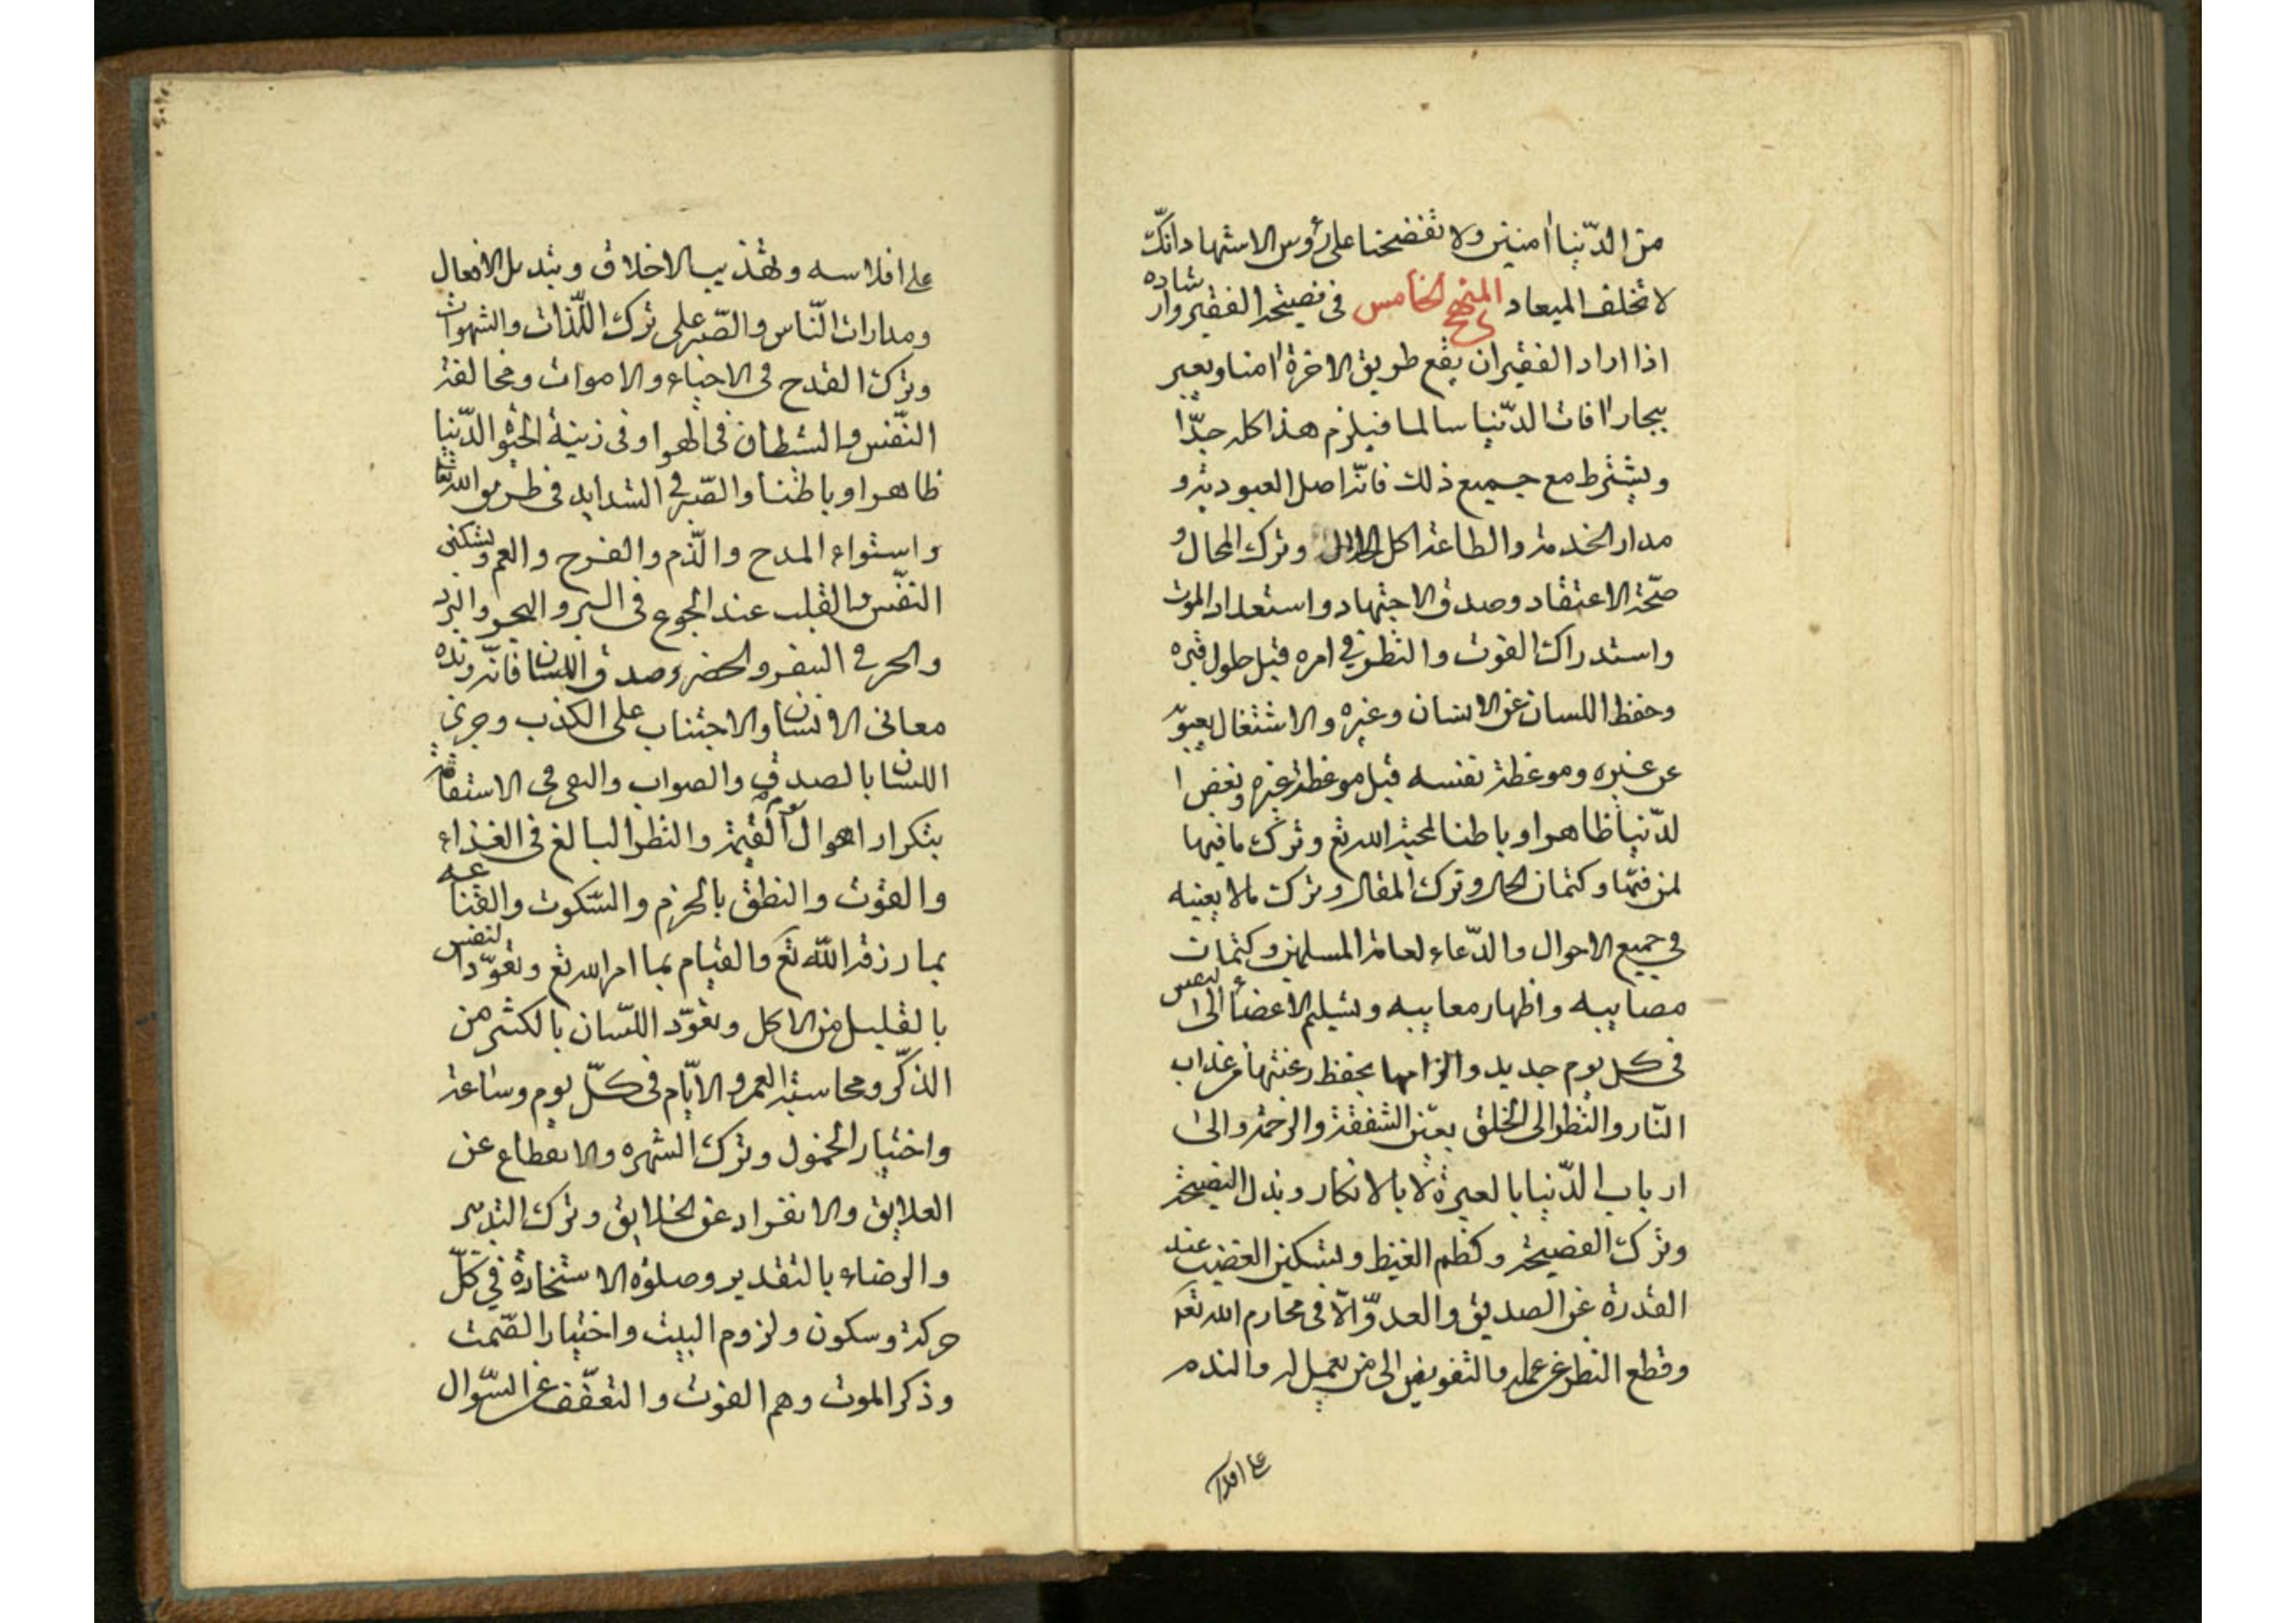 من الدّنيا امنين ولا تفضحنا على رؤس الاشهاد انّك
لا تخلف الميعاد المنهج الخامس فى نصيحة الفقير وارشاده
اذا اراد الفقير ان يقع طريق الاخرة امنا ويعبر
بجار افات الدّنيا سالما فيلزم هذا كله جدّا
ويشترط مع جميع ذلك فانّه اصل العبودية و
مدار الخدمة والطاعة اكل الحلال وترك المحال و
صحّة الاعتقاد وصدق الاجتهاد واستعداد الموت
واستدراك الفوت والنظر فى امره قبل طول قبره
وحفظ اللسان عن الانسان وغيره والاشتغال بعيوبه
عن غيره وموعظة نفسه قبل موعظة غيره وبغض ا
لدّنيا ظاهرا وباطنا لمحبة الله تع وترك ما فيها
لمن فيها وكتمان الحال وترك المقال وترك مالا يعنيه
فى جميع الاحوال والدّعاء لعامة المسلمين وكتمان
مصايبه واظهار معايبه وتسليم الاعضاء الى النفس
فى كل يوم جديد والزامها بحفظ رعيتها من عذاب
النّار والنظر الى الخلق بعين الشفقة والرحمة والى
ارباب الدّنيا بالعبرة لا بالانكار وبذل النصيحة
وترك الفضيحة وكظم الغيظ وتسكين الغضب عند
القدرة عن الصديق والعدوّ الّا فى محارم الله تع
وقطع النظر عن عمله والتفويض الى من يعمل له والندم
على افلا
على افلاسه وتهذيب الاخلاق وتبديل الافعال
ومدارات النّاس والصّبر على ترك اللّذات والشهوات
وترك القدح فى الاحياء والاموات ومخالفة
النّفس والشطان فى الهوا وفى زينة الحيوا الدّنيا
ظاهرا وباطنا والصّبر فى الشدايد فى طريق الله تعا
واستواء المدح والذّم والفرح والغم وتسكين
النّفس والقلب عند الجوع فى البر والبحر والبرد
والحر فى السفر والحضر وصدق اللسان فانّه
معانى الانسان والاجتناب على الكذب وجرى
اللسان بالصدق والصواب والسعى فى الاستقامة
بتكرار اهوال يوم القيمة والنظر البالغ فى الغذاء
والقوت والنطق بالحزم والسّكوت والقناعه
بما رزقه اللّه تع والقيام بما امر الله تع وتعوّد النفس
بالقليل من الاكل وتعوّد اللسّان بالكثير من
الذكّر ومحاسبة العمر والايّام فى كلّ يوم وساعة
واختيار الخمول وترك الشهره والانقطاع عن
العلايق والانفراد عن الخلايق وترك التدبير
والرضاء بالتقدير وصلوة الاستخارة فى كلّ
حركة وسكون ولزوم البيت واختيار الصّمت
وذكر الموت وهم الفوت والتعفّف عن السّوال